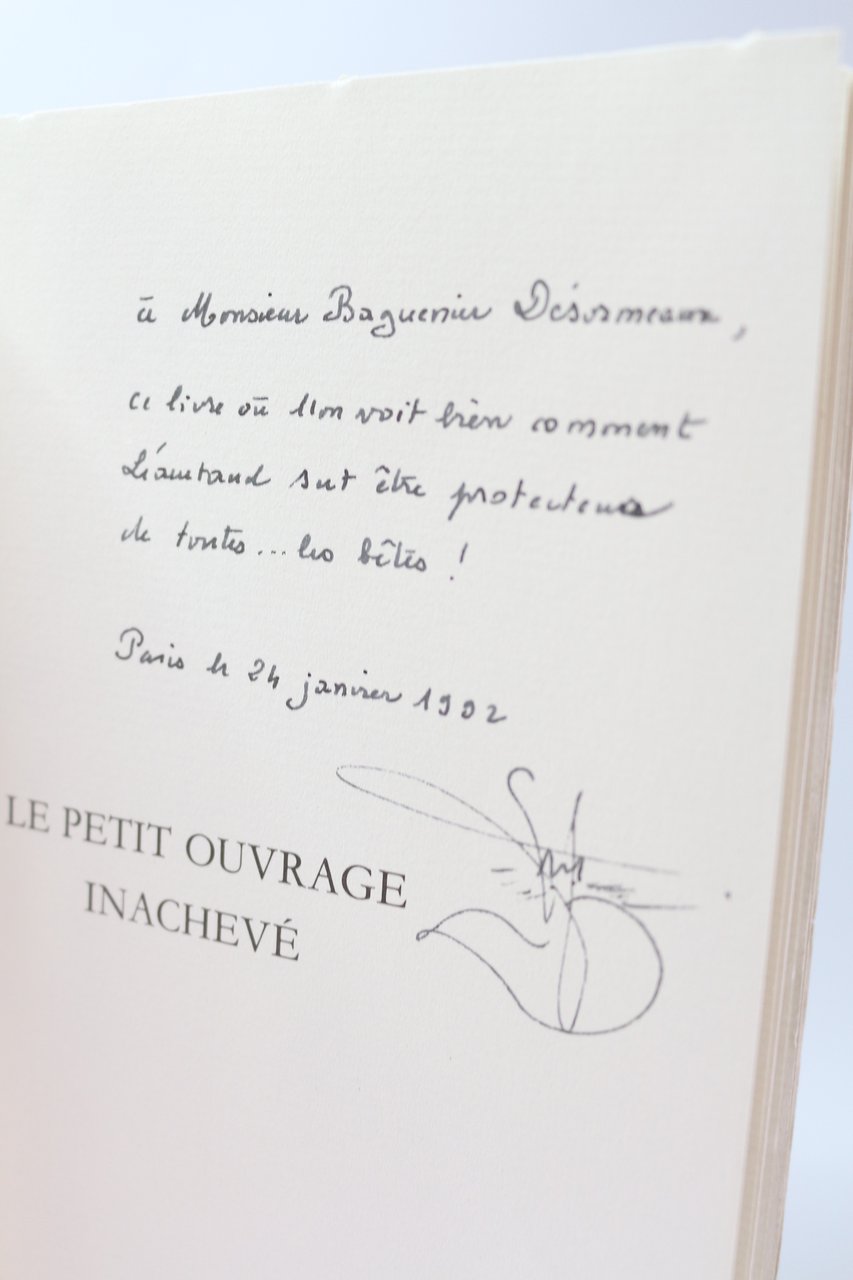 à Monsieur Baguenier Désormeaux,
ce livre où l'on voit bien comment
Léautaud sut être protecteur
de toutes... les bêtes !
Paris le 24 janvier 1992
LE PETIT OUVRAGE
INACHEVÉ